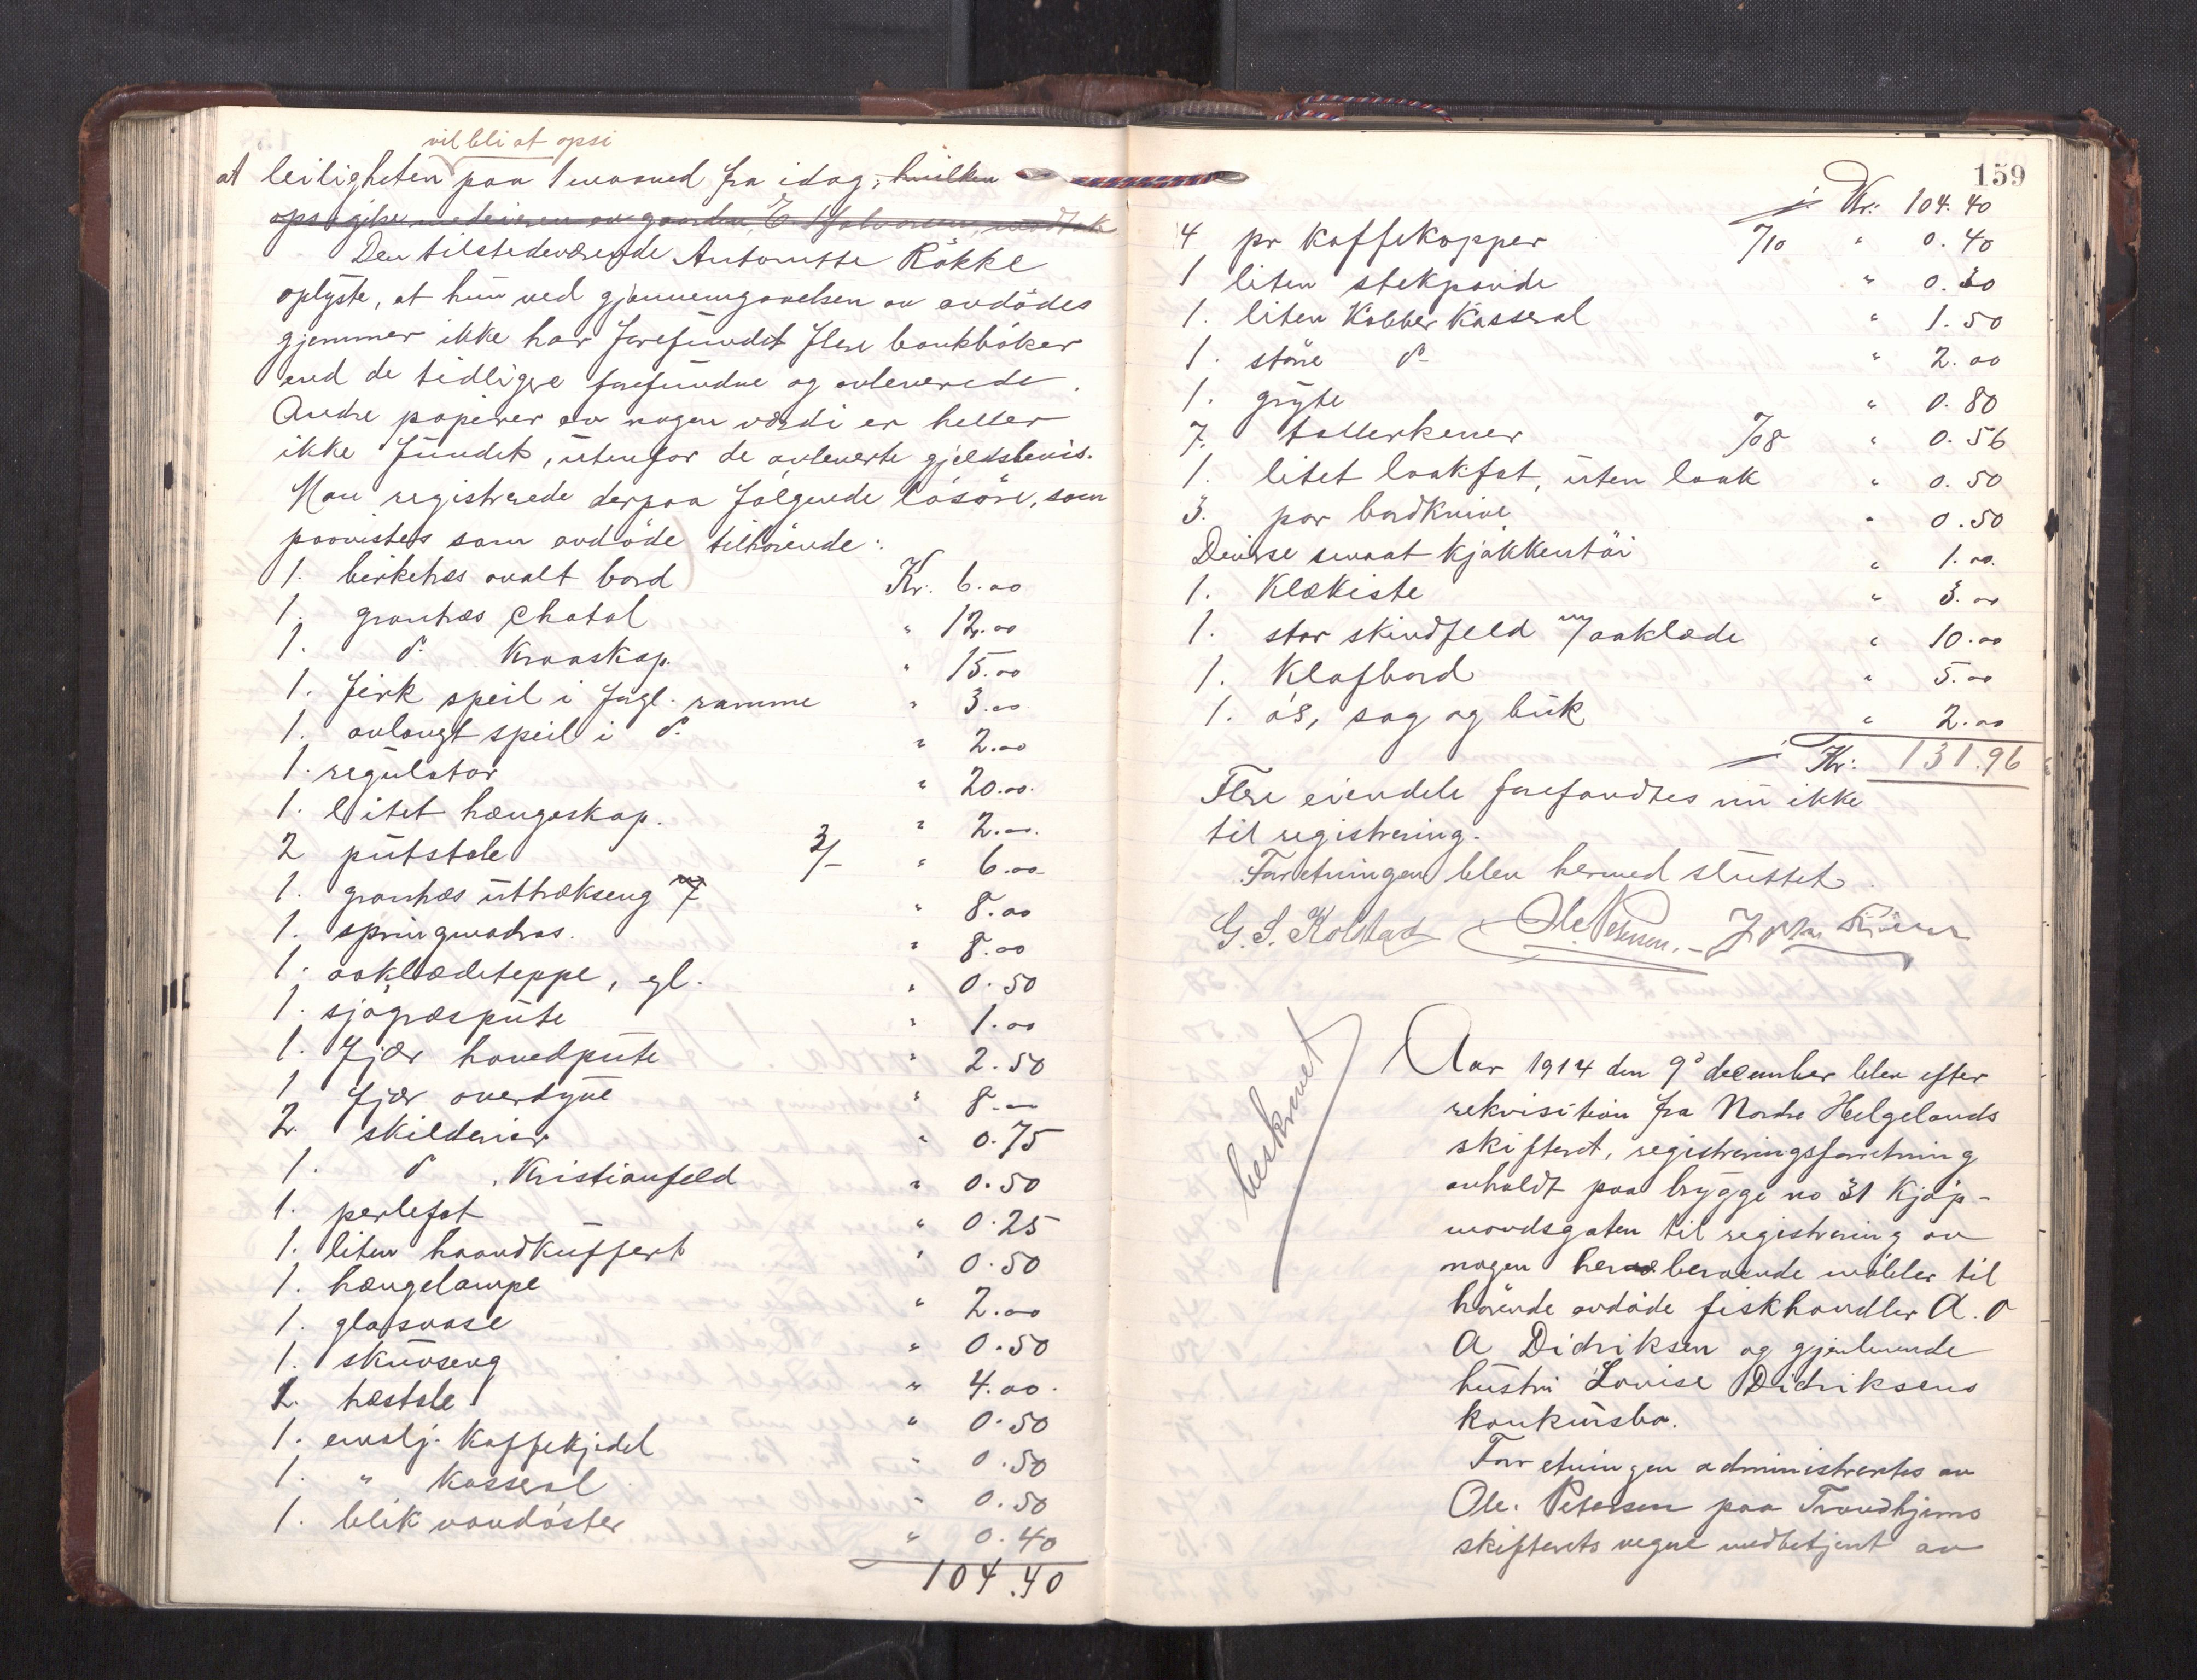 vil bli at opsi
at leiligheten paa 1 maaned fra idag, hvilken
opsigelse medeieren av gaarden, E. Halvorsen, modtok
Den tilstedeværende Antonette Rökke
oplyste, at hun ved gjennemgaaelsen av avdödes
gjemmer ikke har forefundet flere bankböker
end de tidligere forefundne og avleverede.
Andre papirer av nogen værdi er heller
ikke fundet, utenfor de avleverte gjeldsbevis.
Man registrerede derpaa fölgende lösöre, som
paavistes som avdöde tilhörende:
1. birketræs ovalt bord Kr. 6.00
1. grantræs chatol " 12.00
1. do. Kraaskap. " 15.00
1. firk speil i forgl. ramme " 3.00
1. avlangt speil i do. " 2.00
1. regulator " 20.00.
1. litet hængeskap. " 2.00.
2 putstole 3/- " 6.00
1. grantræs uttrækseng " 8.00
1. springmadras. " 8.00
1. aaklædeteppe, gl. " 0.50
1. sjögræspute " 1.00
1. fjær hovedpute " 2.50
1 fjær overdyne " 8.00
2. skilderier " 0.75
1. do, Kristianfeld " 0.50
1. perlefat " 0.25
1. liten haandkuffert " 0.50
1. hængelampe " 2.00
1. glasvase " 0.50
1. skuvseng " 4.00.
2. træstole " 0.50
1. emalj. Kaffekjedel " 0.50
1. " Kasserol " 0.50
1. blik vandöster " 0.40
104.40
159
/. Kr: 104.40
4 pr Kaffekopper /10 " 0.40
1 liten stekpande " 0.30
1. liten Kobber Kasserol " 1.50
1. störe do " 2.00
1. gryte " 0.80
7. tallerkener /08 " 0.56
1. litet laakfat, uten laak " 0.50
3. par bordknive " 0.50
Diverse smaat kjökkentöi " 1.00.
1. Klækiste " 3.00
1. stor skindfeld m/aaklæde " 10.00
1. Klafbord " 5.00
1. ös, sag og buk " 2.00
/. Kr: 131.96
Flere eiendele forefandtes nu ikke
til registrering.
Forretningen blev hermed sluttet.
G. S. Kolstad Ole Petersen.
beskrevet
Aar 1914 den 9de december blev efter
rekvisition fra Nordre Helgelands
skifteret, registreringsforretning
avholdt paa brygge no 31 Kjöp-
mandsgaten til registrering av
nogen her beroende möbler til
hörende avdöde fiskhandler A. O
A Didriksen og gjenlevende
hustru Lovise Didriksens
konkursbo.
Forretningen administrertes av
Ole. Petersen paa Trondhjems
skifterets vegne medbetjent av